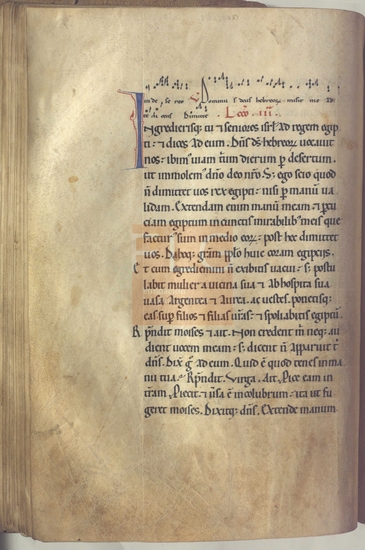 inde, se rex ℣ Dominus deus hebreorum misit me ad
te dicens Dimitte Lectio III.
INgredierisq; tu & seniores isrl ad regem egip
ti & dices ad eum. Dns ds hebreorum uocauit
nos: ibimus uiam trium dierum p desertum.
ut immolemus dno deo nro. S; ego scio quod
n dimittet uos rex egipti: nisi p manum ua
lidam. Extendam enim manum meam & pcu
ciam egiptum in cunctis mirabilib' meis que
factur' sum in medio eorum: post hec dimittet
uos. Daboq; gram pplo huic coram egiptiis.
Et cum egrediemini n exibitis uacui: s; postu
labit mulier a uicina sua & ab hospita sua
uasa argentea & aurea. ac uestes. ponetisq;
eas sup filios & filias uras: & spoliabitis egiptum.
Rpndit moises & ait. Non credent m neq; au
dient uocem meam: s; dicent n apparuit t
dns. Dix g ad eum. Quid e quod tenes in ma
nu tua. Rpndit. Uirga. Ait. Pice eam in
tram. Piecit & uersa e in colubrum: ita ut fu
geret moises. Dixitq; dns. Extende manum